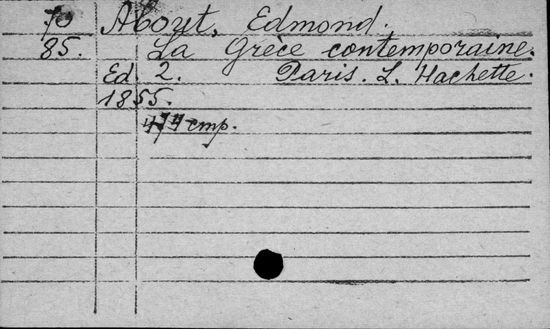 70 About, Edmond.
85. La Grèce contemporaine.
Ed. 2. Paris. L. Hachette.
1855.
474 стр.